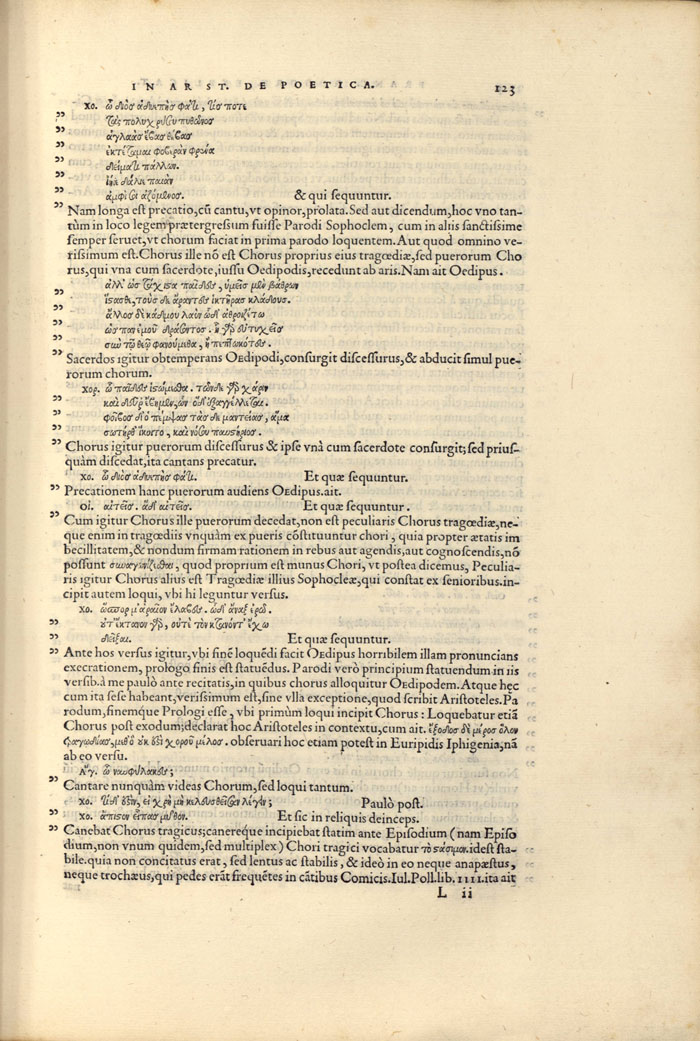 IN ARIST. DE POETICA. 123
χο. ὦ διὸς ἁδυεπὴς φάτι, τίς ποτε
τᾶς πολυχρύσου πυθῶνος
ἀγλαὰς ἔβας θήβας
ἐκτέταμαι φοβερὰν φρένα
δείματι πάλλων.
ἰήϊε δάλιε παιὰν
ἀμφί σοι ἁζόμενος. & qui sequuntur.
Nam longa est precatio, cū cantu, vt opinor, prolata. Sed aut dicendum, hoc vno tan-
tùm in loco legem prætergressum fuisse Parodi Sophoclem, cum in aliis sanctissime
semper seruet, vt chorum faciat in prima parodo loquentem. Aut quod omnino ve-
rissimum est. Chorus ille nō est Chorus proprius eius tragœdiæ, sed puerorum Cho
rus, qui vna cum sacerdote, iussu Oedipodis, recedunt ab aris. Nam ait Oedipus.
ἀλλ' ὡς τάχιστα παῖδες, ὑμεῖς μὲν βάθρων
ἵστασθε, τούσδ' ἄραντες ἱκτῆρας κλάδους.
ἄλλος δὲ κάδμου λαὸν ὧδ' ἀθροιζέτω
ὡς πᾶν ἐμοῦ δράσοντος. ἢ γὰρ εὐτυχεῖς
σὺν τῷ θεῷ φανούμεθα, ἢ πεπτωκότες.
Sacerdos igitur obtemperans Oedipodi, consurgit discessurus, & abducit simul pue-
rorum chorum.
χορ. ὦ παῖδες ἱστώμεσθα. τῶνδε γὰρ χάριν
καὶ δεῦρ' ἔβημεν, ὧν ὅδ' ἐξαγγέλλεται.
φοῖβος δ' ὁ πέμψας τάσδε μαντείας, ἅμα
σωτήρ θ' ἵκοιτο, καὶ νόσου παυστήριος.
Chorus igitur puerorum discessurus & ipse vnà cum sacerdote consurgit; sed prius-
quàm discedat, ita cantans precatur.
χο. ὦ διὸς ἁδυεπὴς φάτι. Et quæ sequuntur.
Precationem hanc puerorum audiens Oedipus. ait.
οἰ. αἰτεῖς. ἃ δ' αἰτεῖς. Et quæ sequuntur.
Cum igitur Chorus ille puerorum decedat, non est peculiaris Chorus tragœdiæ, ne-
que enim in tragœdiis vnquàm ex pueris cōstituuntur chori, quia propter ætatis im
becillitatem, & nondum firmam rationem in rebus aut agendis, aut cognoscendis, nō
possunt συναγωνίζεσθαι, quod proprium est munus Chori, vt postea dicemus, Peculia-
ris igitur Chorus alius est Tragœdiæ illius Sophocleæ, qui constat ex senioribus. in-
cipit autem loqui, vbi hi leguntur versus.
χο. ὥσπερ μ' ἀραῖον ἔλαβες. ὧδ' ἄναξ ἐρῶ.
οὔτ' ἔκτανον γὰρ, οὔτε τὸν κτανόντ' ἔχω
δεῖξαι. Et quæ sequuntur.
Ante hos versus igitur, vbi finē loquēdi facit Oedipus horribilem illam pronuncians
execrationem, prologo finis est statuēdus. Parodi verò principium statuendum in iis
versib. à me paulò ante recitatis, in quibus chorus alloquitur Oedipodem. Atque hęc
cum ita sese habeant, verissimum est, sine vlla exceptione, quod scribit Aristoteles. Pa
rodum, finemque Prologi esse, vbi primùm loqui incipit Chorus: Loquebatur etiā
Chorus post exodum; declarat hoc Aristoteles in contextu, cum ait. ἔξοδος δὲ μέρος ὅλον
τραγῳδίας, μεθ' ὃ οὐκ ἔστι χοροῦ μέλος. obseruari hoc etiam potest in Euripidis Iphigenia, nā
ab eo versu.
Ἄγ. ὦ ναοφύλακες;
Cantare nunquàm videas Chorum, sed loqui tantum.
χο. τί δ' ἔστιν, εἰ χρὴ μὴ κελευσθεῖσαν λέγειν; Paulò post.
χο. ἄπιστον εἶπας μῦθον. Et sic in reliquis deinceps.
Canebat Chorus tragicus; canereque incipiebat statim ante Episodium (nam Episo
dium, non vnum quidem, sed multiplex) Chori tragici vocabatur τὸ στάσιμον. idest sta-
bile. quia non concitatus erat, sed lentus ac stabilis, & ideò in eo neque anapæstus,
neque trochæus, qui pedes erāt frequētes in cātibus Comicis. Iul. Poll. lib. IIII. ita ait
L ii